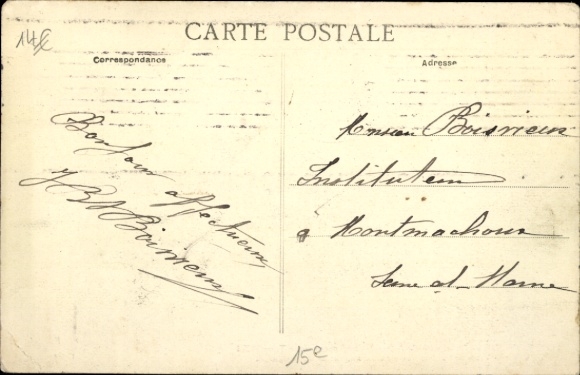 14€
CARTE POSTALE
Correspondance
Adresse
Bonjour affectueux
JB Boisvieux
Monsieur Boisvieux
Instituteur
à Montmachoux
Seine et Marne
15e